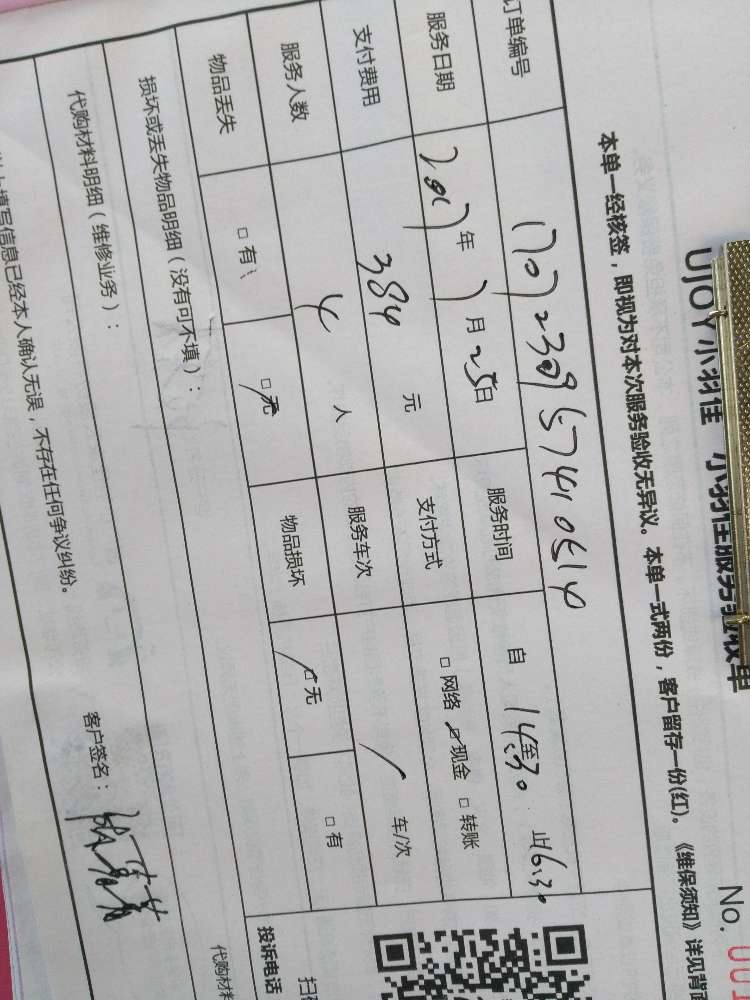 UJOY小羽佳 小羽佳服务验收单
No. 00
本单一经核签，即视为对本次服务验收无异议。本单一式两份，客户留存一份(红)。《维保须知》详见背面
订单编号
服务日期 2017年7月25日 服务时间 自 14:30 至 止 16:30
支付费用 384 元 支付方式 □网络 ☑现金 □转账
服务人数 4 人 服务车次 / 车/次
物品丢失 □有 ☑无 物品损坏 ☑无 □有
损坏或丢失物品明细（没有可不填）：
代购材料明细（维修业务）：
填写信息已经本人确认无误，不存在任何争议纠纷。
客户签名：
投诉电话
代购材料
扫